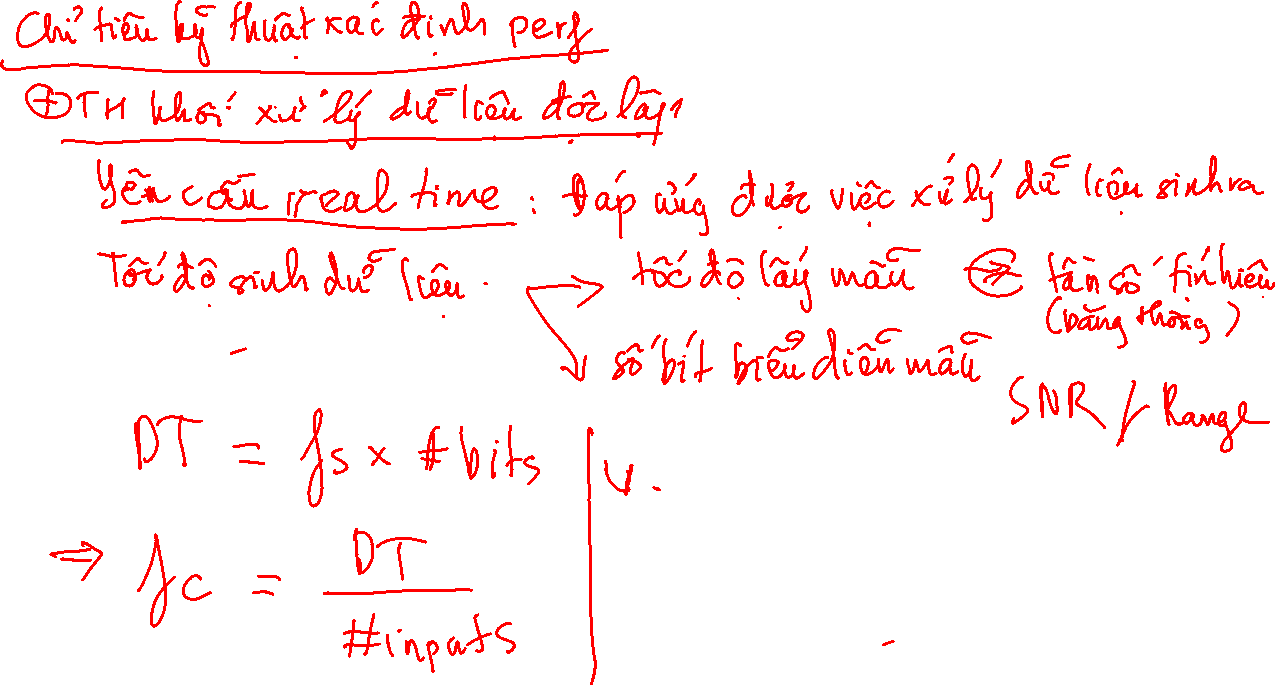 Chỉ tiêu kỹ thuật xác định perf
⊕ TH khối xử lý dữ liệu độc lập
Yêu cầu real time : Đáp ứng được việc xử lý dữ liệu sinh ra
Tốc độ sinh dữ liệu. → tốc độ lấy mẫu ⇔ tần số tín hiệu
(băng thông)
↘ số bít biểu diễn mẫu
SNR / Range
DT = fs × #bits | v.
⇒ fc = DT / #inputs